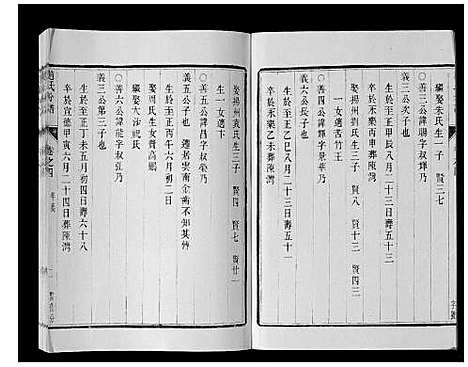 繼娶朱氏生一子　賢三七
義三公次子
○善三公諱賜字叔輝乃
生於至正甲辰八月二十三日壽五十三
卒於永樂丙申葬陳灣
娶劉氏生三子　賢八　賢十三　賢四三
一女適苦竹王
○善四公諱字景華乃
義六公長子
生於至正乙巳八月二十七日壽五十一
卒於永樂乙未葬陳灣
娶揚州袁氏生三子　賢四　賢七　賢廿一
生一女適卞
○善五公諱昌字叔榮乃
義五公子　遷居雲南金齒不知其傳
生於至正丙午六月二日
娶周氏生女賢高賜
○善六公諱能字叔弘乃
義三公第三子
生於至正丁未五月初四日壽六十八
卒於宣德甲寅六月二十四日葬陳灣
繼娶小祝氏
趙氏份譜
卷之四